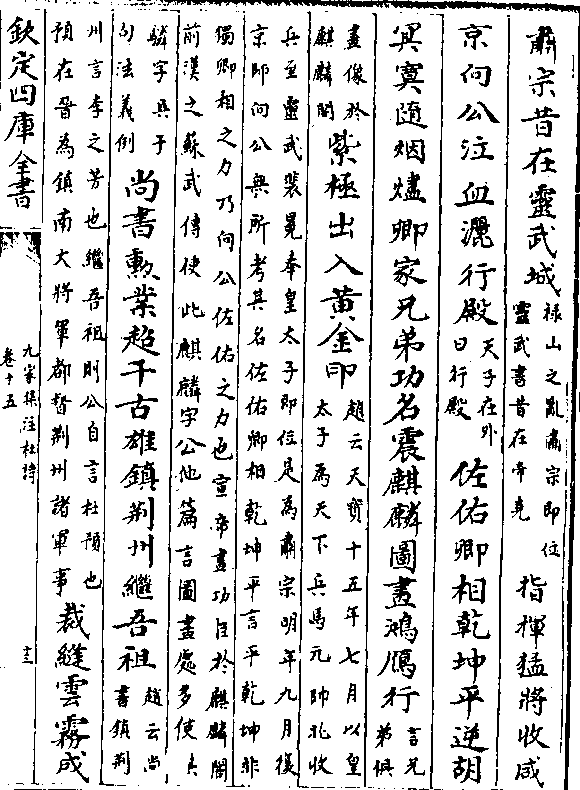 肅宗昔在靈武城祿山之亂肅宗即位靈武書昔在帝堯指揮猛將收咸
京向公泣血灑行殿天子在外曰行殿佐佑卿相乾坤平逆胡
冥寞隨烟燼卿家兄弟功名震麒麟圖畫鴻鴈行言兄弟俱
畫像於麒麟閣紫極出入黃金印趙云天寶十五年七月以皇太子為天下兵馬元帥北收
兵至靈武裴冕奉皇太子即位是為肅宗明年九月復
京師向公無所考其名佐佑卿相乾坤平言平乾坤非
獨卿相之力乃向公佐佑之力也宣帝畫功臣於麒麟閣
前漢之蘇武傳使此麒麟字公他篇言圖畫處多使
驎字與于句法義例尚書勲業超千古雄鎮荆州繼吾祖趙云尚書鎮荆
州言李之芳也繼吾祖則公自言杜預也預在晉為鎮南大將軍都督荆州諸軍事裁縫雲霧成
欽定四庫全書
九家集注杜詩
卷十五
十三